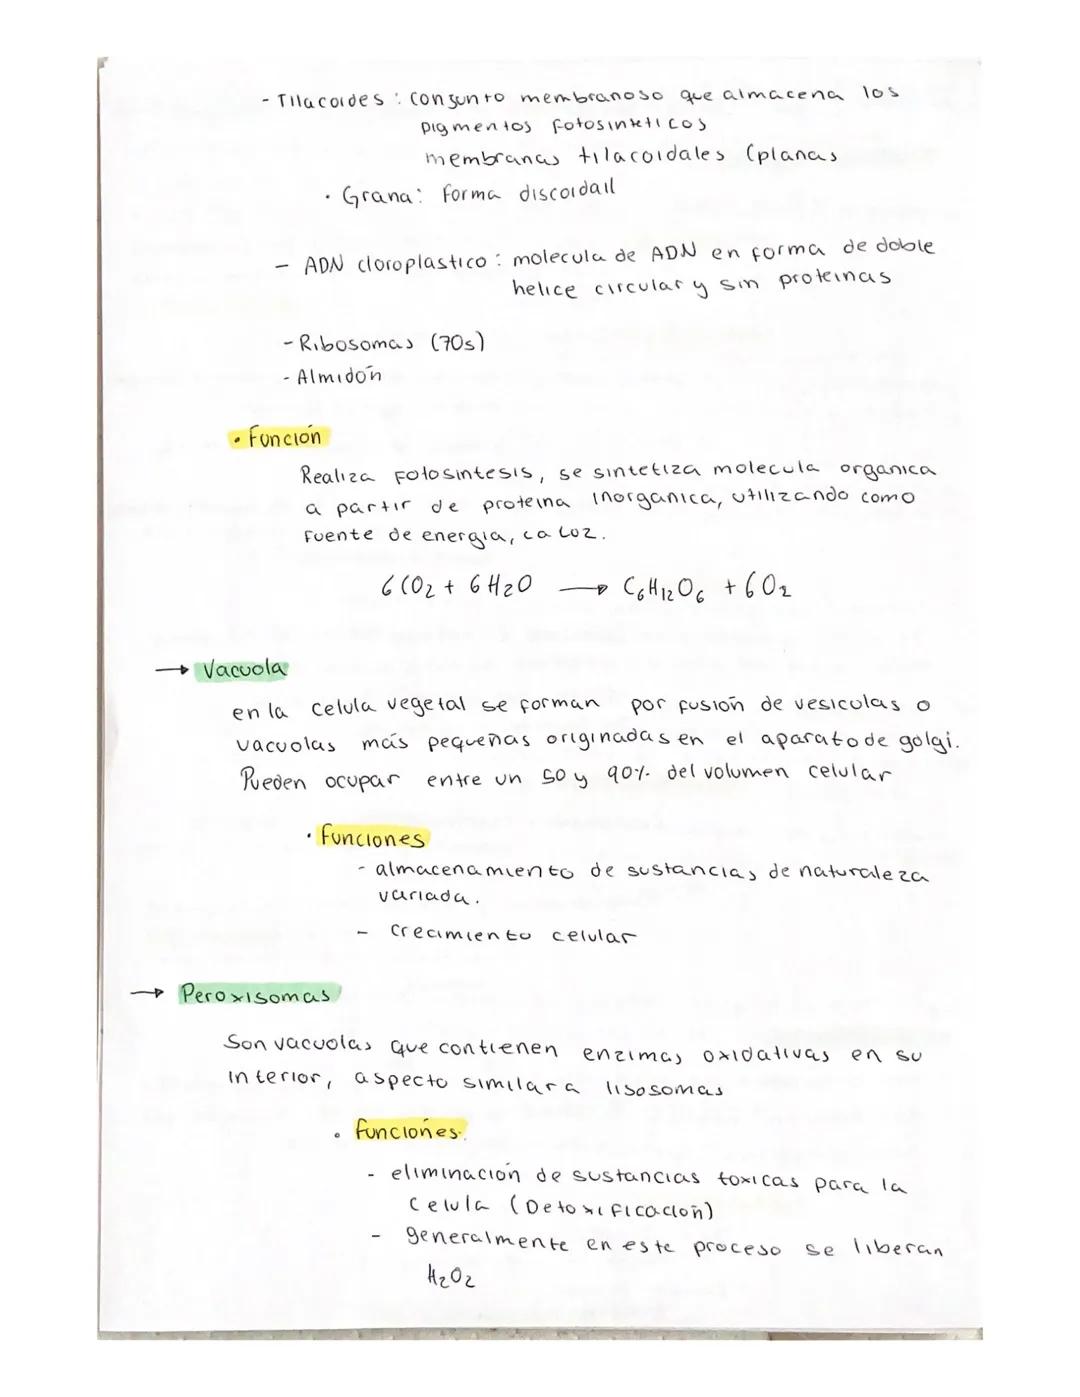 - Tilacoides : conjunto membranoso que almacena los
pigmentos fotosinteticos
membranas tilacoidales (planas
· Grana: forma discoidail
- ADN cloroplastico : molecula de ADN en forma de doble
helice circular y sin proteinas
- Ribosomas (70s)
- Almidón
• Función
Realiza Fotosintesis, se sintetiza molecula organica
a partir de proteina inorganica, utilizando como
fuente de energia, ca luz.
6CO2 + 6H2O → C6H12O6 + 6O2
→ Vacuola
en la celula vegetal se forman por fusión de vesiculas o
vacuolas más pequeñas originadas en el aparato de golgi.
Pueden ocupar entre un 50 y 90% del volumen celular
· Funciones
- almacenamiento de sustancias de naturaleza
variada.
- crecimiento celular
→ Peroxisomas
Son vacuolas que contienen enzimas oxidativas en su
interior, aspecto similar a lisosomas
• funciones.
- eliminación de sustancias toxicas para la
celula (Detoxificación)
- generalmente en este proceso se liberan
H2O2